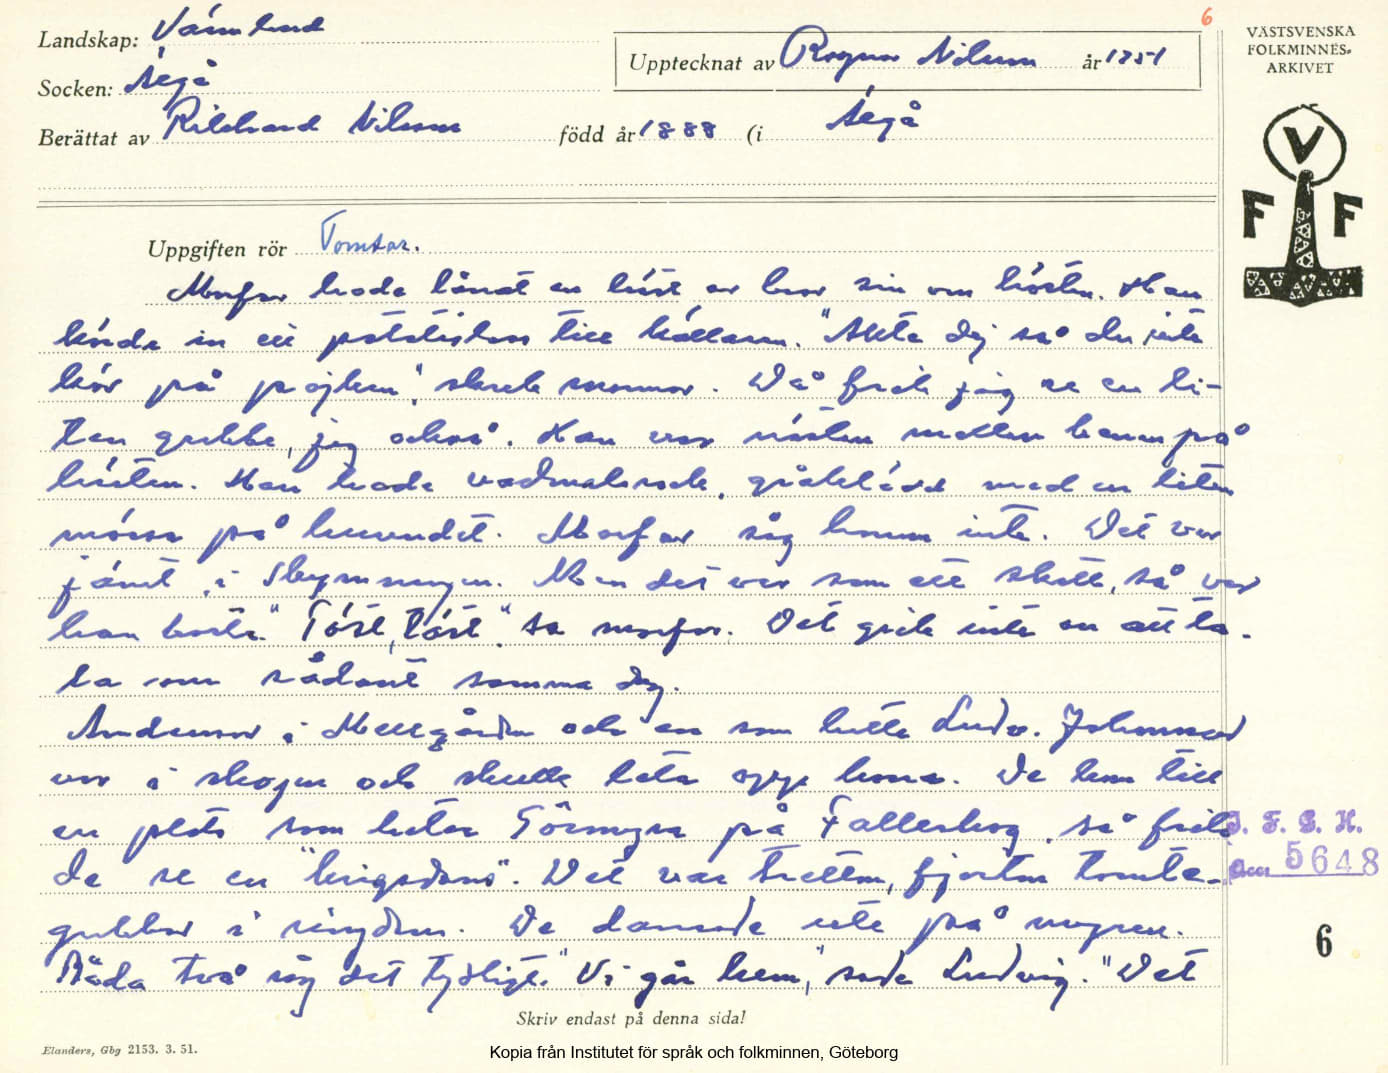 6
Landskap: Värmland
Upptecknat av Ragnar Nilsson år 1951
VÄSTSVENSKA
FOLKMINNES-
ARKIVET
Socken:
Berättat av Rikhard Nilsson född år 1888 (i
V
F F
Uppgiften rör Tomtar.
Morfar hade lånat en häst av bror sin om hösten. Han
körde in ett potatislass till källaren. "Akta dej så du inte
kör på pojken", skrek mormor. Då fick jag se en li-
ten gubbe, jag också. Han var nästan mellan benen på
hästen. Han hade vadmalsrock, gråklädd med en liten
mössa på huvudet. Morfar såg honom inte. Det var
jämt i skymningen. Men det var som ett skott, så var
han borta." "Töst, töst", sa morfar. Det gick inte an att ta-
la om sådant samma dag.
Andersson i Mellgården och en som hette Ludv. Johansson
var i skogen och skulle leta opp korna. De kom till
en plats som heter på Fallerskog, så fick
de se en "ringdans". Det var tretton, fjorton tomte-
gubbar i ringdans. De dansade ute på mossen.
Båda två såg det tydligt. "Vi går hem," sade Ludvig. "Det
I. F. G. H.
Acc 5648
6
Skriv endast på denna sida!
Elanders, Gbg 2153. 3. 51.
Kopia från Institutet för språk och folkminnen, Göteborg